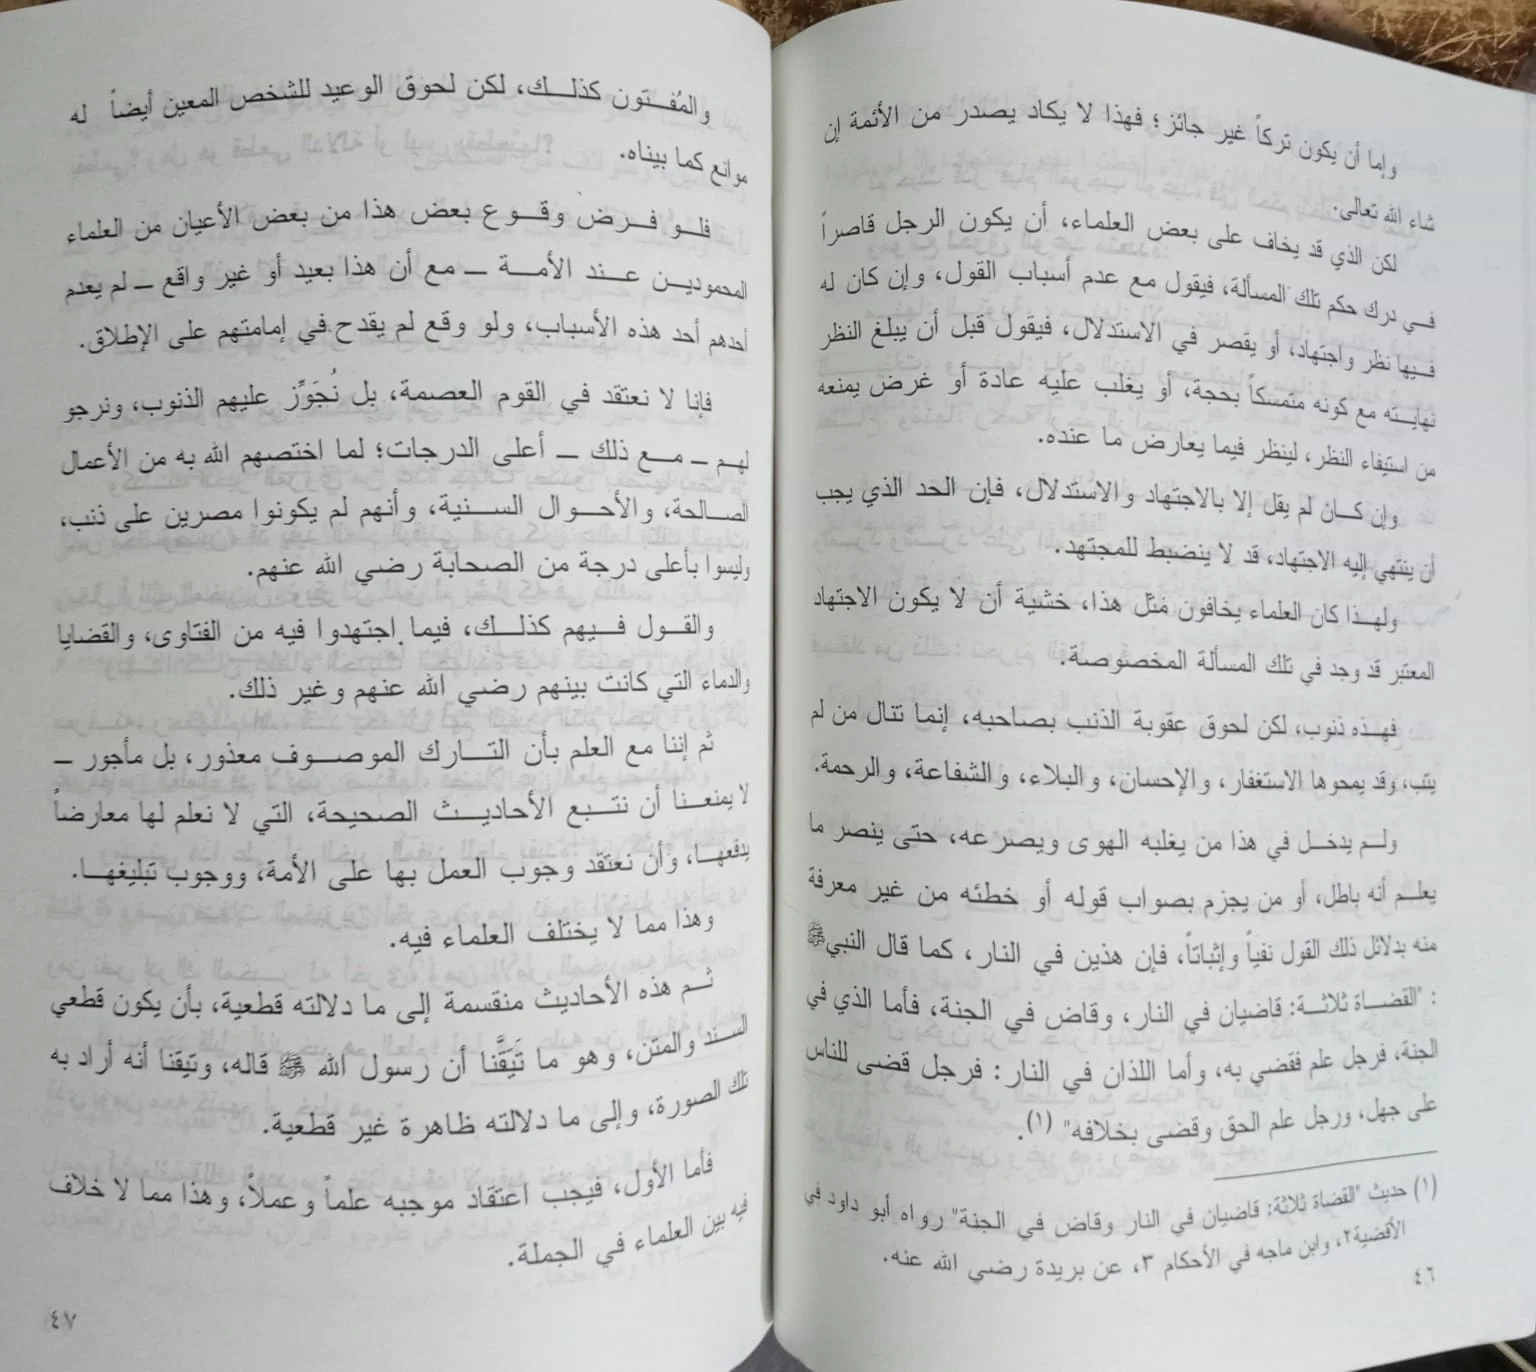 وإما أن يكون تركاً غير جائز؛ فهذا لا يكاد يصدر من الأئمة إن
شاء الله تعالى.
لكن الذي قد يخاف على بعض العلماء، أن يكون الرجل قاصراً
فـي درك حكم تلك المسألة، فيقول مع عدم أسباب القول، وإن كان له
فـيها نظر واجتهاد، أو يقصر في الاستدلال، فيقول قبل أن يبلغ النظر
نهايـته مع كونه متمسكاً بحجة، أو يغلب عليه عادة أو غرض يمنعه
من استيفاء النظر، لينظر فيما يعارض ما عنده.
وإن كـان لم يقل إلا بالاجتهاد والاستدلال، فإن الحد الذي يجب
أن ينتهي إليه الاجتهاد، قد لا ينضبط للمجتهد.
ولهـذا كان العلماء يخافون مثل هذا، خشية أن لا يكون الاجتهاد
المعتبر قد وجد في تلك المسألة المخصوصة.
فهـذه ذنوب، لكن لحوق عقوبة الذنب بصاحبه، إنما تنال من لم
يتب، وقد يمحوها الاستغفار، والإحسان، والبلاء، والشفاعة، والرحمة.
ولـم يدخـل في هذا من يغلبه الهوى ويصرعه، حتى ينصر ما
يعلـم أنه باطل، أو من يجزم بصواب قوله أو خطئه من غير معرفة
منه بدلائل ذلك القول نفياً وإثباتاً، فإن هذين في النار، كما قال النبي ﷺ
: "القضـاة ثلاثـة: قاضيان في النار، وقاض في الجنة، فأما الذي في
الجنة، فرجل علم فقضي به، وأما اللذان في النار: فرجل قضى للناس
على جهل، ورجل علم الحق وقضى بخلافه" (١).
(١) حديث "القضاة ثلاثة: قاضيان في النار وقاض في الجنة" رواه أبو داود في
الأقضية٢، وابن ماجه في الأحكام ٣، عن بريدة رضي الله عنه.
٤٦
والمُفـتون كذلـك، لكن لحوق الوعيد للشخص المعين أيضاً له
موانع كما بيناه.
فلـو فـرض وقـوع بعض هذا من بعض الأعيان من العلماء
المحموديـن عـند الأمـة ـ مع أن هذا بعيد أو غير واقع ـ لم يعدم
أحدهم أحد هذه الأسباب، ولو وقع لم يقدح في إمامتهم على الإطلاق.
فإنا لا نعتقد في القوم العصمة، بل نُجَوِّز عليهم الذنوب، ونرجو
لهـم ـ مـع ذلك ـ أعلى الدرجات؛ لما اختصهم الله به من الأعمال
الصـالحة، والأحـوال السـنية، وأنهم لم يكونوا مصرين على ذنب،
وليسوا بأعلى درجة من الصحابة رضي الله عنهم.
والقـول فـيهم كذلـك، فيما اجتهدوا فيه من الفتاوى، والقضايا
والدماء التي كانت بينهم رضي الله عنهم وغير ذلك.
ثم إننا مع العلم بأن التـارك الموصـوف معذور، بل مأجور ـ
لا يمنعـنا أن نتـبع الأحاديـث الصحيحة، التي لا نعلم لها معارضاً
يدفعهـا، وأن نعتقد وجوب العمل بها على الأمة، ووجوب تبليغهـا.
وهذا مما لا يختلف العلماء فيه.
ثـم هذه الأحاديث منقسمة إلى ما دلالته قطعية، بأن يكون قطعي
السـند والمتن، وهو ما تَيَقَّنا أن رسول الله ﷺ قاله، وتيقنا أنه أراد به
تلك الصورة، وإلى ما دلالته ظاهرة غير قطعية.
فأما الأول، فيجب اعتقاد موجبه علماً وعملاً، وهذا مما لا خلاف
فيه بين العلماء في الجملة.
٤٧